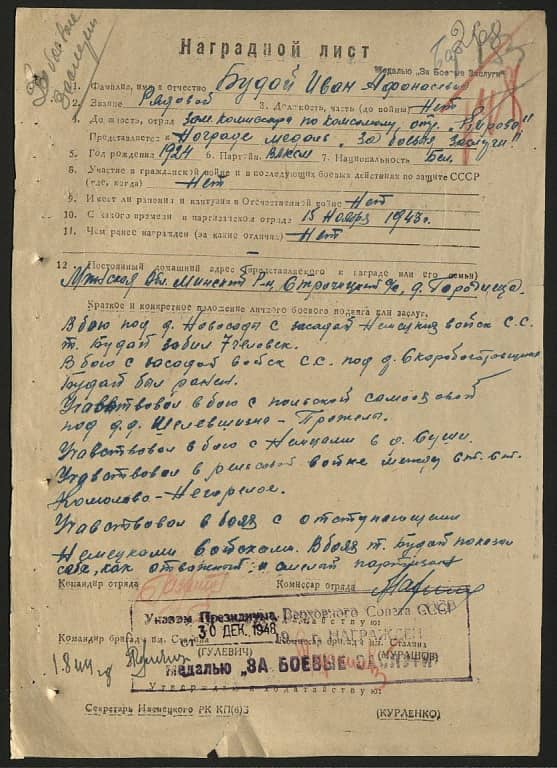 За боевые
заслуги
Наградной лист
Медалью „За Боевые Заслуги"
1. Фамилия, имя и отчество Будай Иван Афонасьев
2. Звание Рядовой 3. Должность, часть (до войны) Нет
4. Должность, отряд зам. комиссара по комсомолу, отр. „Кирова"
Представляется к Награде медаль „За боевые заслуги"
5. Год рождения 1924 6. Партийн. ВЛКСМ 7. Национальность Бел.
8. Участие в гражданской войне и в последующих боевых действиях по защите СССР
(где, когда) Нет
9. Имеет ли ранения и контузии в Отечественной войне Нет
10. С какого времени в партизанском отряде 15 Ноября 1943г.
11. Чем ранее награжден (за какие отличия) Нет
12 Постоянный домашний адрес (представляемого к награде или его семьи)
Минская Обл. Минский р-н, с/с, д. Городища.
Краткое и конкретное изложение личного боевого подвига или заслуг.
В бою под д. Новосады с засадой Немецких войск С.С.
т. Будай забил 7 человек.
В бою с засадой войск С.С. под д. Скоробогатовщина
Будай был ранен.
Учавствовал в бою с польской самооховой
под д.д.
Учавствовал в бою с Немцами в д. Суши.
Учавствовал в рельсовой войне между ст. ст.
Койданово-Негорелое.
Учавствовал в боях с отступающими
Немецкими войсками. В боях т. Будай показал
себя, как отважный и смелый партизан
Командир отряда Комиссар отряда
Указом Президиума Верховного Совета СССР
от 30 ДЕК. 1948 19 г. НАГРАЖДЕН
медалью „ЗА БОЕВЫЕ ЗАСЛУГИ"
Командир бригады им. Сталина Комиссар бригады им. Сталина
(ГУЛЕВИЧ) (МУРАШОВ)
Утверждаю и ходатайствую:
Секретарь Ивенецкого РК КП(б)Б (КУРЛЕНКО)